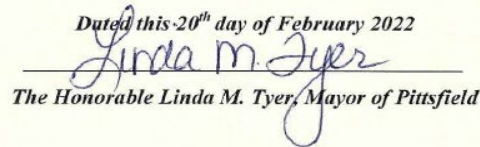 Dated this 20th day of February 2022
Linda M. Tyer
The Honorable Linda M. Tyer, Mayor of Pittsfield